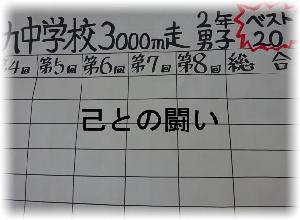 九中学校3000m走 2年男子 ベスト20
第4回 第5回 第6回 第7回 第8回 総合
己との闘い